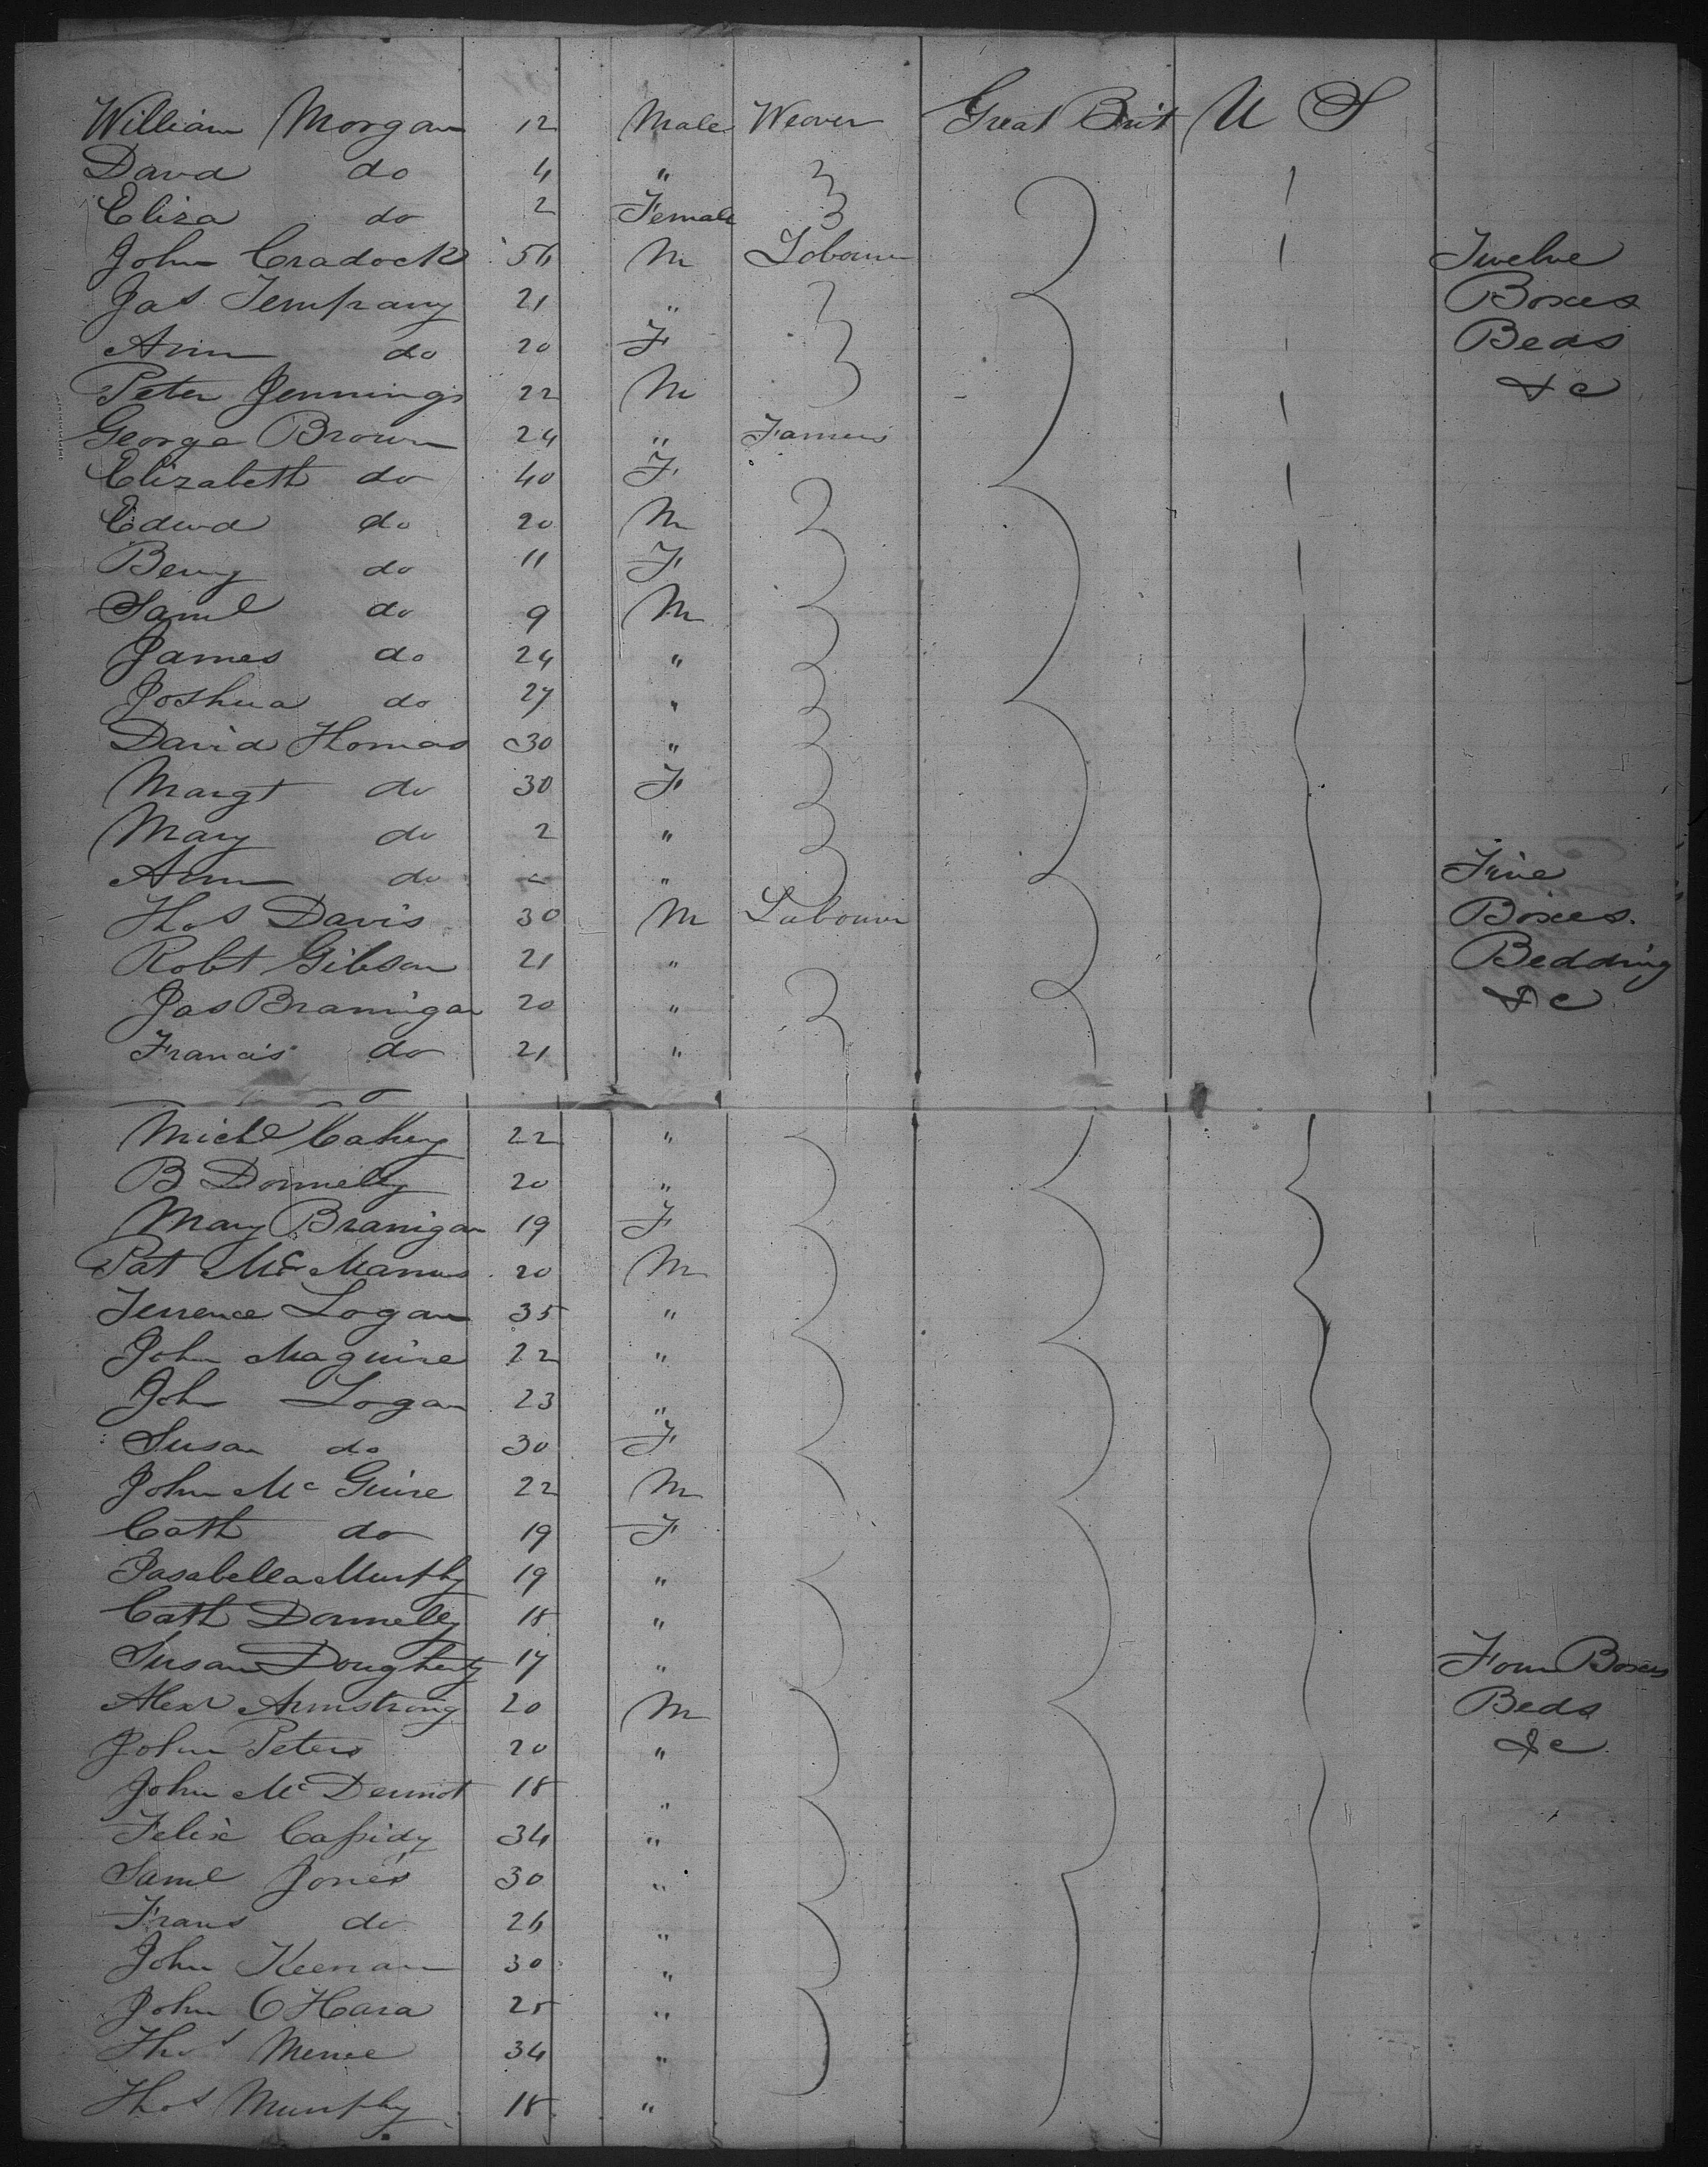 William Morgan 12 Male Weaver Great Brit U S
David do 4 "
Eliza do 2 Female
John Cradock 56 M Labourer Twelve
Jas Tempany 21 " Boxes
Ann do 20 F Beds
Peter Jennings 22 M &c
George Brown 24 " Farmers
Elizabeth do 40 F
Edwd do 20 M
do 11 F
Saml do 9 M
James do 24 "
Joshua do 27 "
David Thomas 30 "
Margt do 30 F
Mary do 2 "
Ann do " Five
Thos Davis 30 M Labourer Boxes.
Robt Gibson 21 " Bedding
Jas Branigan 20 " &c
Francis do 21 "
Michl Cahey 22 "
B Donnelly 20 "
Mary Branigan 19 F
Pat McManus 20 M
Terrence Logan 35 "
John Maguire 22 "
John Logan 23 "
Susan do 30 F
John McGuire 22 M
Cath do 19 F
Isabella Murphy 19 "
Cath Donnelly 18 "
Susan Dougherty 17 " Four Boxes
Alexr Armstrong 20 M Beds
John Peters 20 " &c
John McDermot 18 "
Felix Cassidy 34 "
Saml Jones 30 "
Frans do 26 "
John Keenan 30 "
John OHara 25 "
Thos 34 "
Thos Murphy 18 "